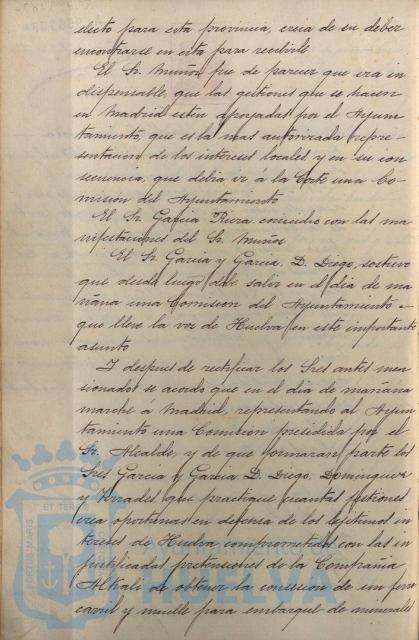 electo para esta provincia, creia de su deber
encontrarse en esta para recibirle
El Sr. Muñoz fue de parecer que era in
dispensable, que las gestiones que se hacen
en Madrid esten apoyadas por el Ayun
tamiento, que es la mas autorizada repre-
sentacion de los intereses locales, y en su con
secuencia, que debia ir á la Corte una Co-
mision del Ayuntamiento
El Sr. Garcia Riera, coincidio con las ma
nifestaciones del Sr. Muñoz
El Sr. Garcia y Garcia, D. Diego, sostuvo
que desde luego debe salir en el dia de ma
ñana una Comision del Ayuntamiento -
que lleve la voz de Huelva en este importante
asunto
Y despues de rectificar los Sres antes men
sionados se acordó que en el dia de mañana
marche á Madrid, representando al Ayun
tamiento una Comision presidida por el
Sr. Alcalde, y de que formaran parte los
Sres Garcia y Garcia D. Diego, Dominguez
y que practique cuantas gestiones
crea oportunas en defensa de los lejitimos in
tereses de Huelva comprometidos con las in
justificadas pretensiones de la Compañia
Alkali de obtener la concesion de un ferro
carril y muelle para embarque de minerales
PORTUS MARIS
ET TERRAE
Ayuntamiento de
HUELVA